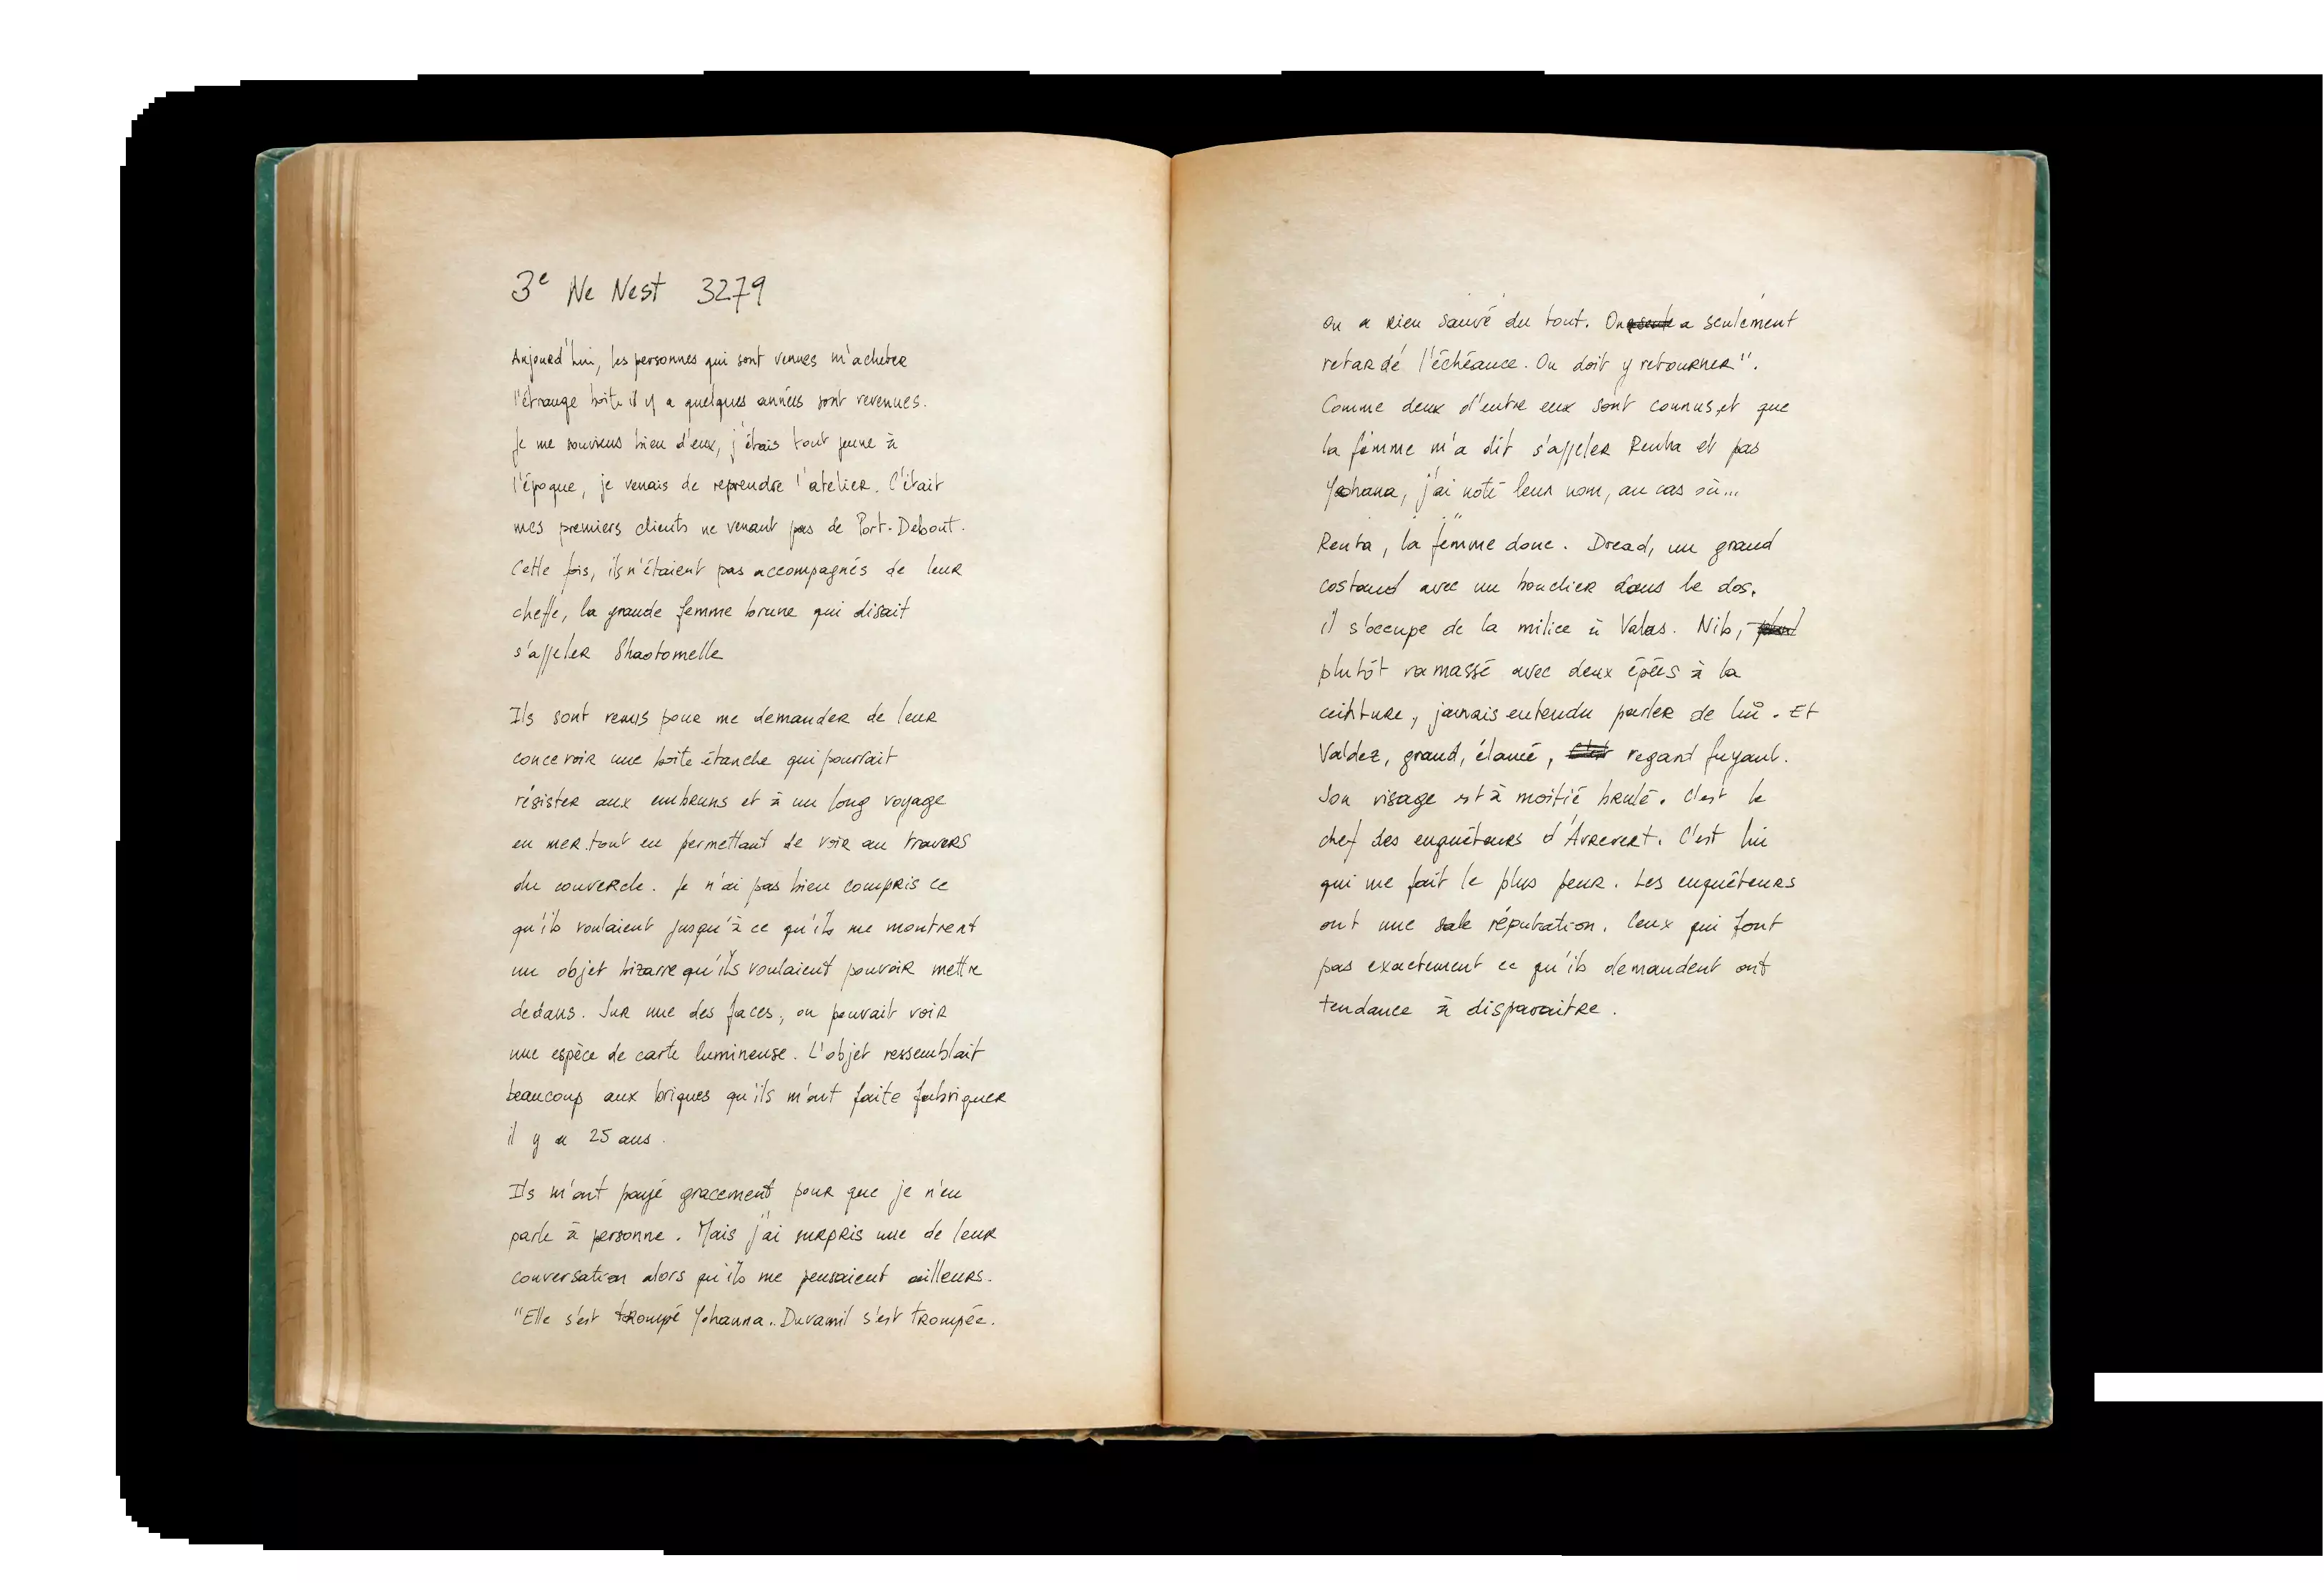 3e Ne Nest 3279
Aujourd'hui, les personnes qui sont venues m'acheter
l'étrange boite il y a quelques années sont revenues.
Je me souviens bien d'eux, j'étais tout jeune à
l'époque, je venais de reprendre l'atelier. C'était
mes premiers clients ne venant pas de Port-Debout.
Cette fois, ils n'étaient pas accompagnés de leur
cheffe, la grande femme brune qui disait
s'appeler Shaotomelle
Ils sont venus pour me demander de leur
concevoir une boite étanche qui pourrait
résister aux embruns et à un long voyage
en mer tout en permettant de voir au travers
du couvercle. Je n'ai pas bien compris ce
qu'ils voulaient jusqu'à ce qu'ils me montrent
un objet bizarre qu'ils voulaient pouvoir mettre
dedans. Sur une des faces, on pouvait voir
une espèce de carte lumineuse. L'objet ressemblait
beaucoup aux briques qu'ils m'ont faite fabriquer
il y a 25 ans.
Ils m'ont payé gracement pour que je n'en
parle à personne. Mais j'ai surpris une de leur
conversation alors qu'ils me pensaient ailleurs.
"Elle s'est trompé Yohanna. Duramil s'est trompée.
On a rien sauvé du tout. On a seulement
retardé l'échéance. On doit y retourner".
Comme deux d'entre eux sont connus, et que
la femme m'a dit s'appeler Renta et pas
Yohana, j'ai noté leur nom, au cas où...
Renta, la femme donc. Dread, un grand
costaud avec un bouclier dans le dos.
il s'occupe de la milice à Valas. Nib,
plutôt ramassé avec deux épées à la
ceinture, jamais entendu parler de lui. Et
Valdez, grand, élancé, regard fuyant.
Son visage est à moitié brulé. C'est le
chef des enquêteurs d'Avrevert. C'est lui
qui me fait le plus peur. Les enquêteurs
ont une sale réputation. Ceux qui font
pas exactement ce qu'ils demandent ont
tendance à disparaitre.